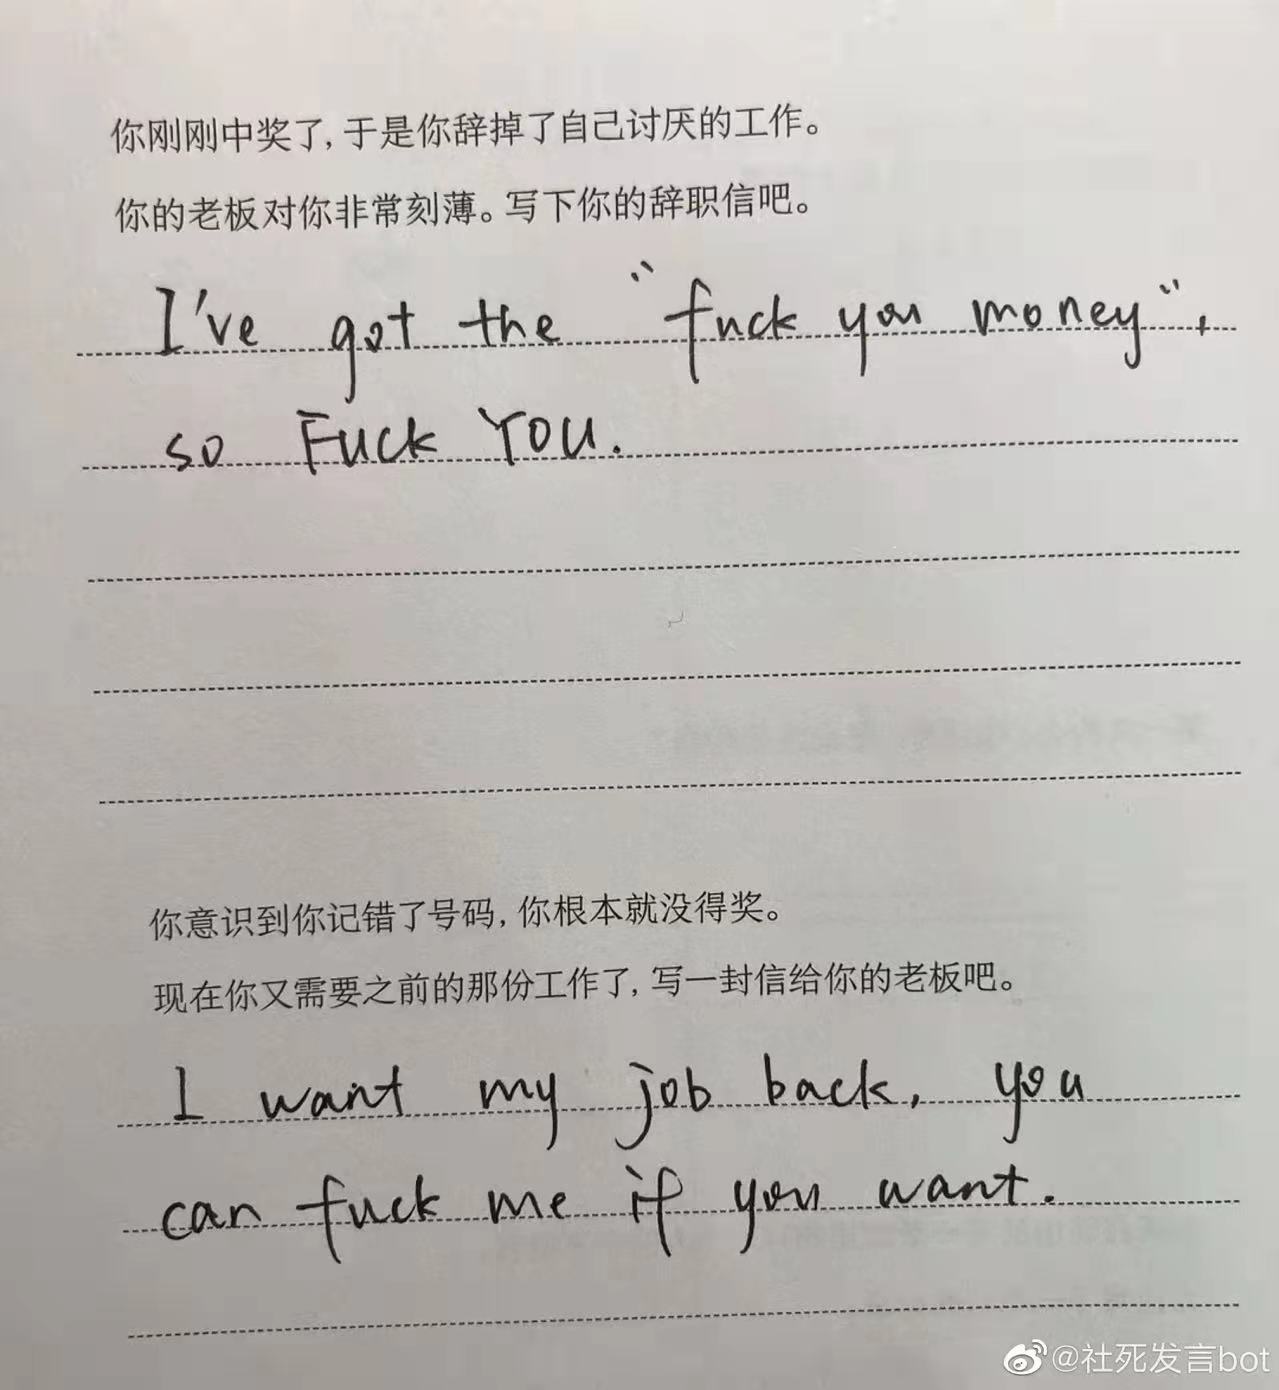 你刚刚中奖了, 于是你辞掉了自己讨厌的工作。
你的老板对你非常刻薄。写下你的辞职信吧。
I've got the "fuck you money",
so FUCK YOU.
你意识到你记错了号码, 你根本就没得奖。
现在你又需要之前的那份工作了, 写一封信给你的老板吧。
I want my job back, you
can fuck me if you want.
@社死发言bot